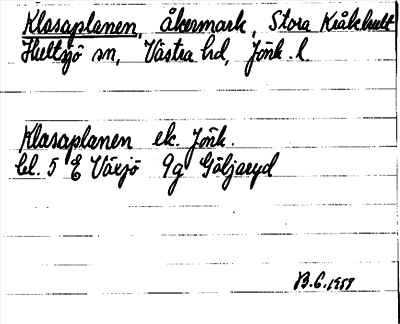 Klasaplanen, åkermark, Stora Kråkhult
Hultsjö sn, Västra hd, Jönk. l.
Klasaplanen ek. Jönk.
bl. 5 E Växjö 9g Göljaryd
B.G. 1957